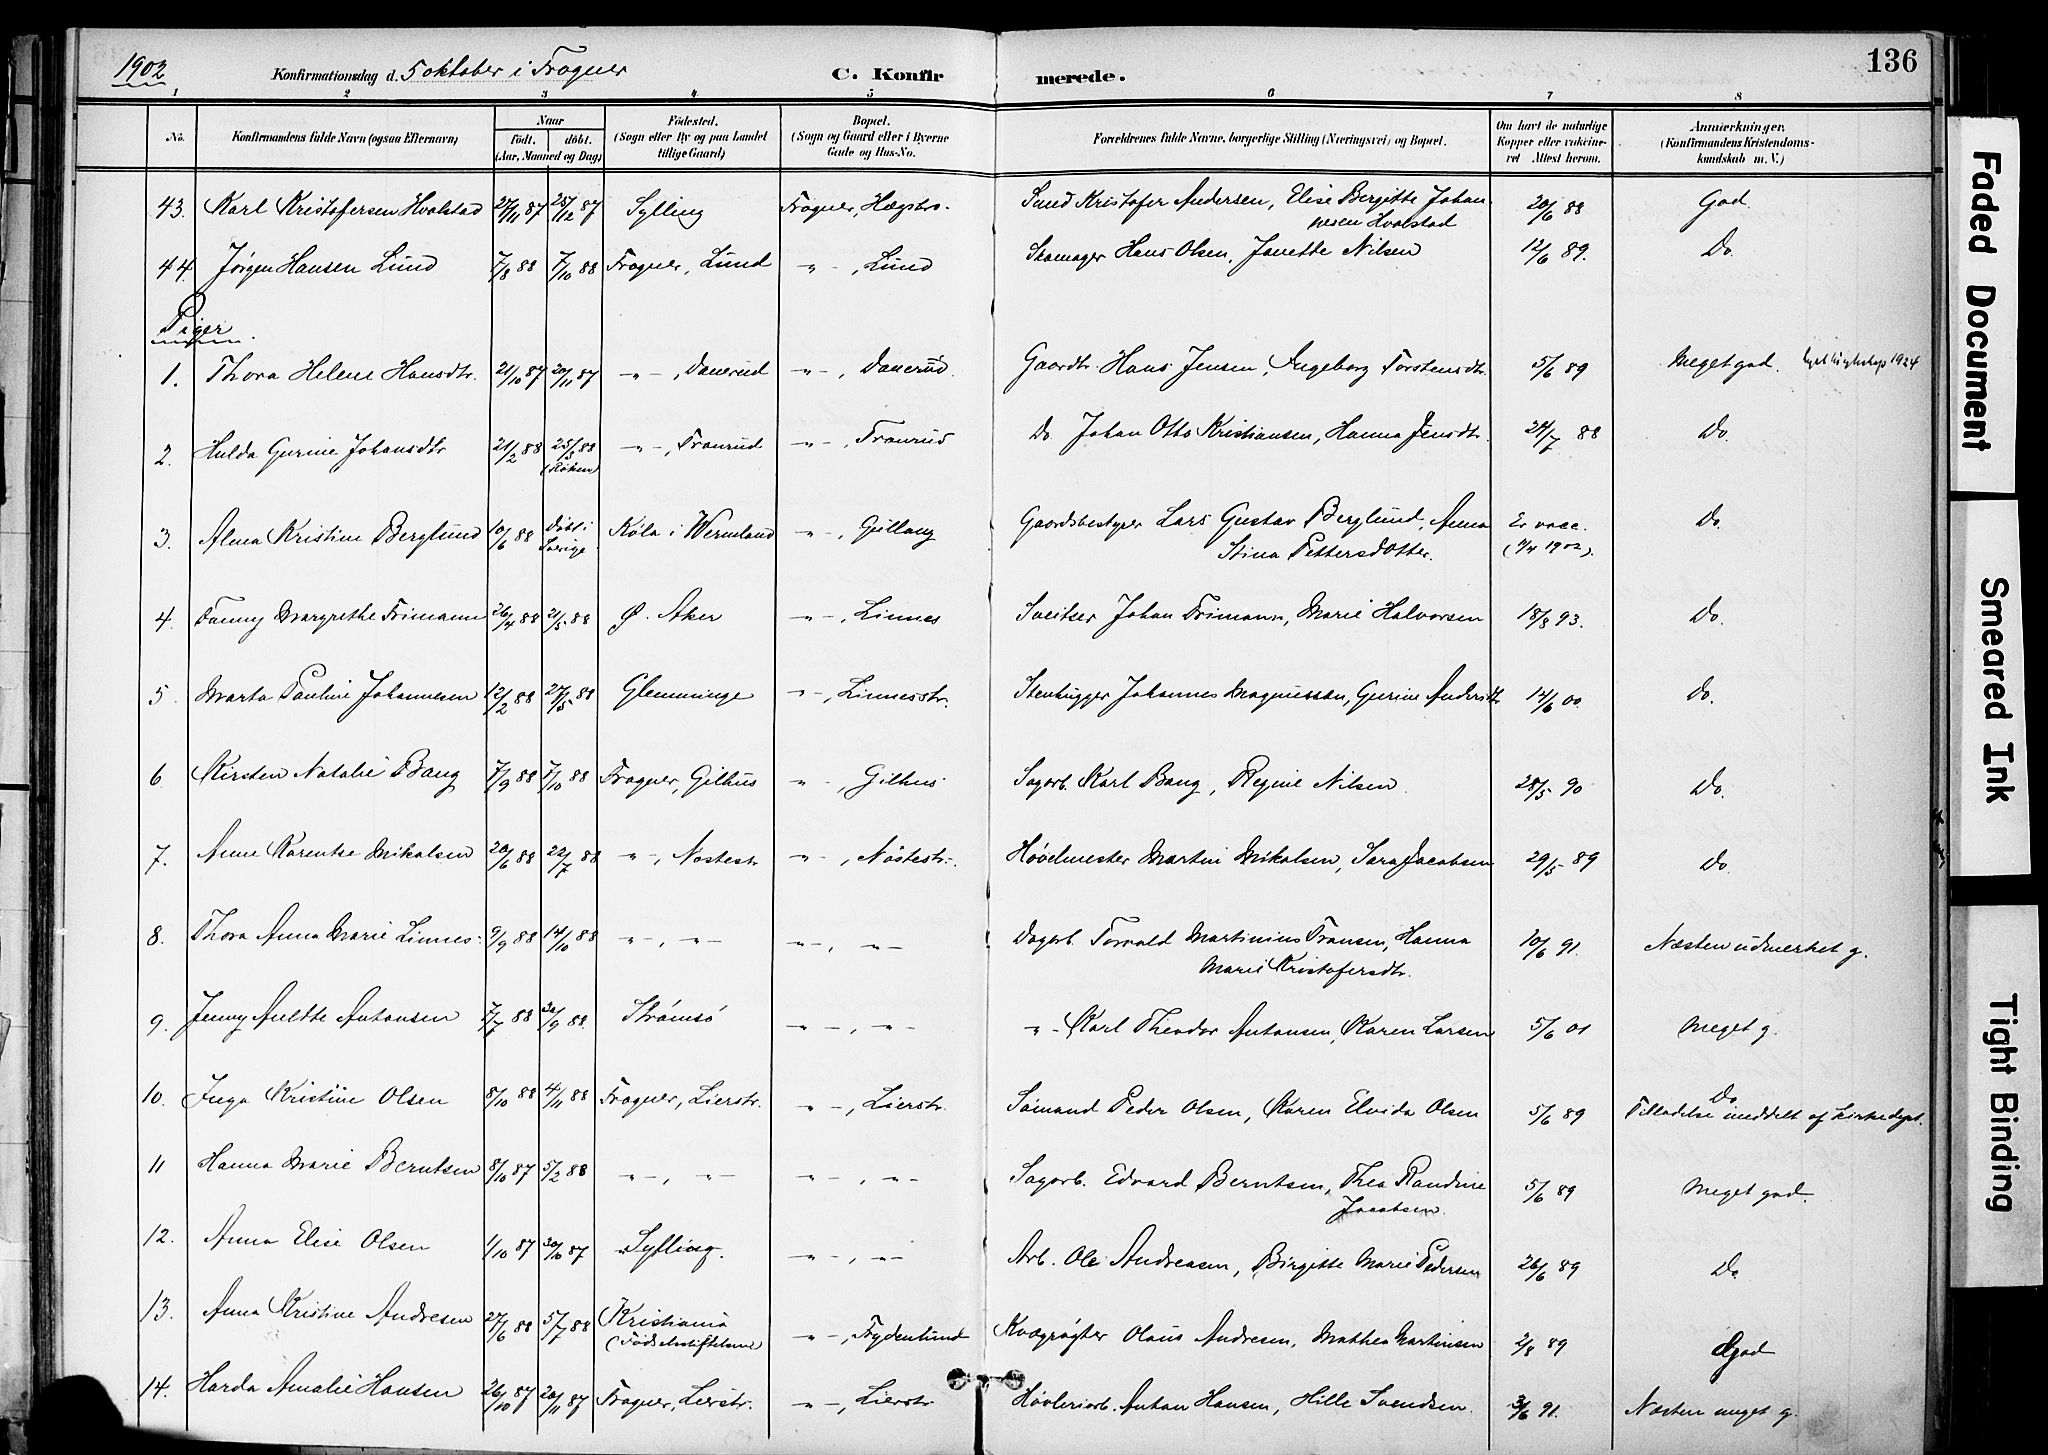 1902 Konfirmationsdag d. 5 oktober i Frogner C. Konfirmerede. 136
1 2 3 4 5 6 7 8
No. Konfirmandens fulde Navn (ogsaa Efternavn) Naar født. døbt. (Aar, Maaned og Dag) Fødested. (Sogn eller By og paa Landet tillige Gaard) Bopæl. (Sogn og Gaard eller i Byerne Gade og Hus-No. Forældrenes fulde Navne, borgerlige Stilling (Næringsvei) og Bopæl. Om havt de naturlige Kopper eller vakcineret Attest herom. Anmærkninger. (Konfirmandens Kristendomskundskab m. V.)
43. Karl Kristofersen Hvalstad 27/11 87 25/12 87 Sylling Frogner, Hægstro. Smed Kristofer Andersen, Elise Bergitte Johannesen Hvalstad 20/6 88 God.
44. Jørgen Hansen Lund 7/8 88 7/10 88 Frogner, Lund -"-, Lund Skomager Hans Olsen, Janette Nilsen 12/6 89. Do.
Piger
1. Thora Helene Hansdtr. 21/10 87 20/11 87 -"-, Danerud -"-, Danerud. Gaardbr. Hans Jensen, Ingeborg Torstensdtr. 5/6 89 Meget god. 1924
2. Hulda Gurine Johansdtr 21/2 88 25/3 88 (Røken) -"-, Tranrud -"-, Tranrud Do. Johan Otto Kristiansen, Hanna Jensdtr. 24/7 88 Do.
3. Alma Kristine Berglund 10/6 88 Døbt i Sverige Køla i Wermland -"-, Gullaug Gaardsbestyrer Lars Gustav Berglund, Anna Stina Pettersdotter. Er vacc. (11/4 1902). Do.
4. Fanny Margrethe Frimann 26/4 88 21/5 88 Ø. Aker -"-, Linnes Sveitser Johan Frimann, Marie Halvorsen 18/8 93. Do.
5. Marta Pauline Johannesen 12/2 88 27/5 88 Glemminge -"-, Linnesstr. Stenhugger Johannes Magnussen, Gurine Andersdtr 14/6 00. Do.
6 Kirsten Natalie Bang 7/9 88 7/10 88 Frogner, Gilhus -"-, Gilhus Sagarb. Karl Bang, Regine Nilsen. 28/5 90 Do.
7. Anne Karentse Mikalsen 20/6 88 22/7 88 -"-, Nøstestr -"-, Nøstestr. Høvelmester Martin Mikalsen, Sara Jacobsen 29/5 89 Do.
8. Thora Anna Marie Linnes 9/9 88 14/10 88 -"-, -"- -"-, -"- Dagarb. Torvald Martinius Fransen, Hanna Marie Kristofersdtr. 10/6 91. Næsten udmerket g.
9. Jenny Anette Antonsen 2/7 88 30/9 88. Strømsø -"-, -"- -"- Karl Theodor Antonsen, Karen Larsen 5/6 01 Meget g.
10. Inga Kristine Olsen 8/10 88 4/11 88 Frogner, Lierstr. -"-, Lierstr. Sømand Peder Olsen, Karen Elvida Olsen 5/6 89 Do. Tilladelse meddelt af Kirkedept.
11 Hanna Marie Berntsen 8/10 87 5/2 88 -"-, -"- -"-, -"- Sagarb. Edvard Berntsen, Thea Randine Jacobsen. 5/6 89 Meget god.
12. Anna Elise Olsen 1/10 87 30/10 87 Sylling. -"-, -"- Arb. Ole Andreasen, Birgitte Marie Pedersen 26/6 89 Do
13. Anna Kristine Andresen 27/6 88 5/7 88 Kristiania (Fødselsstiftelsen) -"-, Frydenlund Kvægrøgter Olaus Andresen, Mathea Martinsen 2/8 89 God
14. Harda Amalie Hansen 26/10 87 20/11 87 Frogner, Lierstr. -"-, Lierstr Høvleriarb. Anton Hansen, Hille Svendsen. 3/6 91. Næsten meget g.
Faded Document
Smeared Ink
Tight Binding